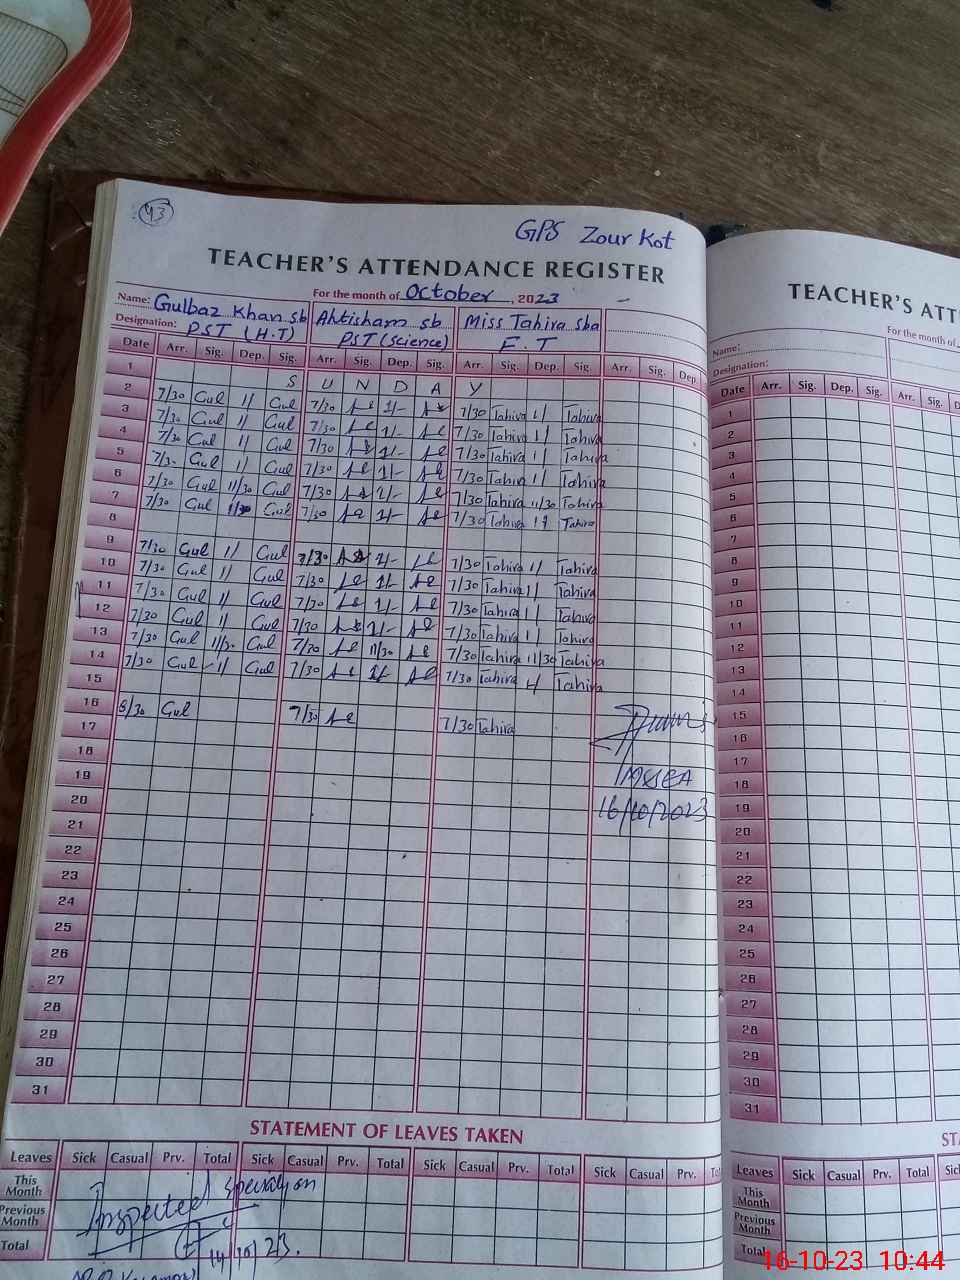 43
GPS Zour Kot
TEACHER'S ATTENDANCE REGISTER
For the month of October, 2023
Name: Gulbaz Khan sb Ahtisham sb Miss Tahira sba
Designation: PST (H.T) PST (Science) F.T
Date Arr. Sig. Dep. Sig. Arr. Sig. Dep. Sig. Arr. Sig. Dep. Sig. Arr. Sig. Dep.
1 S U N D A Y
2 7/30 Gul 11 Gul 7/30 1/- 7/30 Tahira 11 Tahira
3 7/30 Gul 11 Gul 7/30 1/- 7/30 Tahira 11 Tahira
4 7/30 Gul 11 Gul 7/30 1/- 7/30 Tahira 11 Tahira
5 7/30 Gul 11 Gul 7/30 1/- 7/30 Tahira 11 Tahira
6 7/30 Gul 11/30 Gul 7/30 1/- 7/30 Tahira 11/30 Tahira
7 7/30 Gul 11/30 Gul 7/30 1/- 7/30 Tahira 11 Tahira
8
9 7/30 Gul 11 Gul 7/30 1/- 7/30 Tahira 11 Tahira
10 7/30 Gul 11 Gul 7/30 1/- 7/30 Tahira 11 Tahira
11 7/30 Gul 11 Gul 7/30 1/- 7/30 Tahira 11 Tahira
12 7/30 Gul 11 Gul 7/30 1/- 7/30 Tahira 11 Tahira
13 7/30 Gul 11/30 Gul 7/30 11/30 7/30 Tahira 11/30 Tahira
14 7/30 Gul 11 Gul 7/30 1/- 7/30 Tahira 11 Tahira
15
16 8/30 Gul 7/30 7/30 Tahira
17
18
19
20
21
22
23
24
25
26
27
28
29
30
31
16/10/2023
STATEMENT OF LEAVES TAKEN
Leaves Sick Casual Prv. Total Sick Casual Prv. Total Sick Casual Prv. Total Sick Casual Prv. Tot
This Month
Previous Month
Total
Inspected
14/10/23.
TEACHER'S ATT
For the month of
Name:
Designation:
Date Arr. Sig. Dep. Sig. Arr. Sig. D
1
2
3
4
5
6
7
8
9
10
11
12
13
14
15
16
17
18
19
20
21
22
23
24
25
26
27
28
29
30
31
STA
Leaves Sick Casual Prv. Total Sick
This Month
Previous Month
Total
16-10-23 10:44